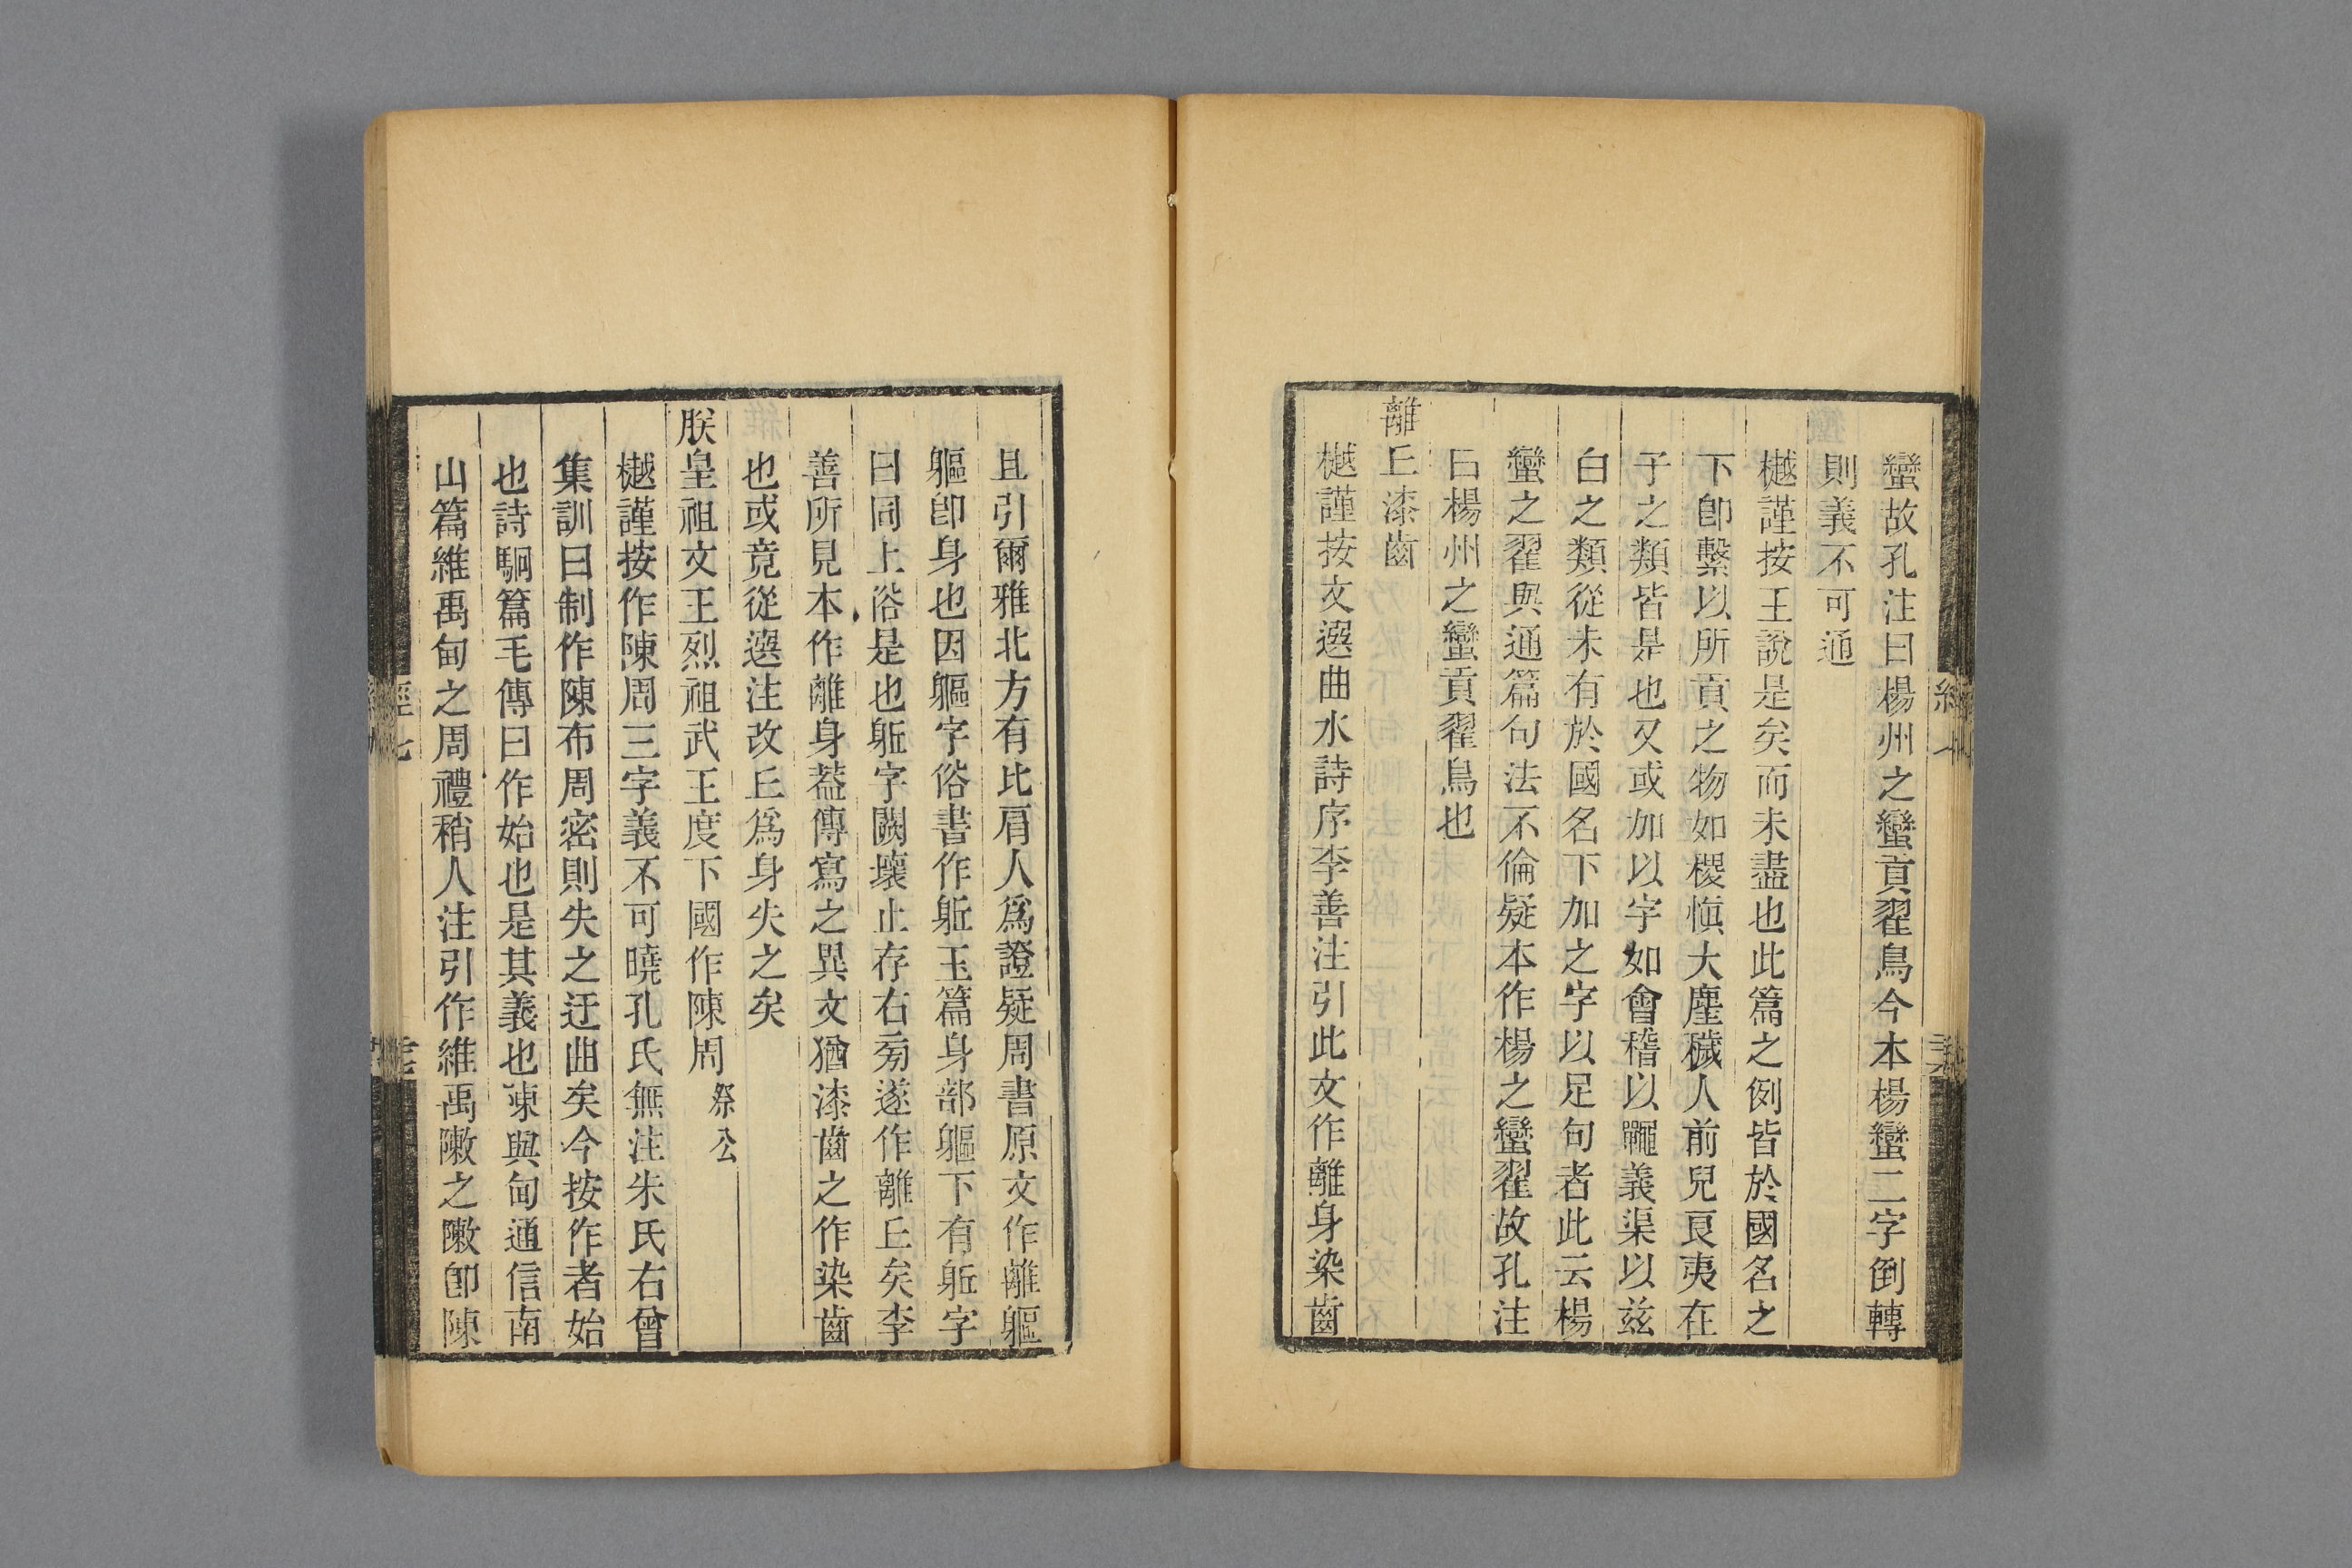 蠻故孔注曰楊州之蠻貢翟鳥今本楊蠻二字倒轉
則義不可通
樾謹按王說是矣而未盡也此篇之例皆於國名之
下卽繫以所貢之物如稷愼大麈穢人前兒良夷在
子之類皆是也又或加以字如會稽以鼉義渠以茲
白之類從未有於國名下加之字以足句者此云楊
蠻之翟與通篇句法不倫疑本作楊之蠻翟故孔注
曰楊州之蠻貢翟鳥也
離丘漆齒
樾謹按文選曲水詩序李善注引此文作離身染齒
且引爾雅北方有比肩人爲證疑周書原文作離軀
軀卽身也因軀字俗書作䠳玉篇身部軀下有䠳字
曰同上俗是也䠳字闕壞止存右旁遂作離丘矣李
善所見本作離身葢傳寫之異文猶漆齒之作染齒
也或竟從選注改丘爲身失之矣
朕皇祖文王烈祖武王度下國作陳周祭公
樾謹按作陳周三字義不可曉孔氏無注朱氏右曾
集訓曰制作陳布周密則失之迂曲矣今按作者始
也詩駉篇毛傳曰作始也是其義也陳與甸通信南
山篇維禹甸之周禮稍人注引作維禹敶之敶卽陳